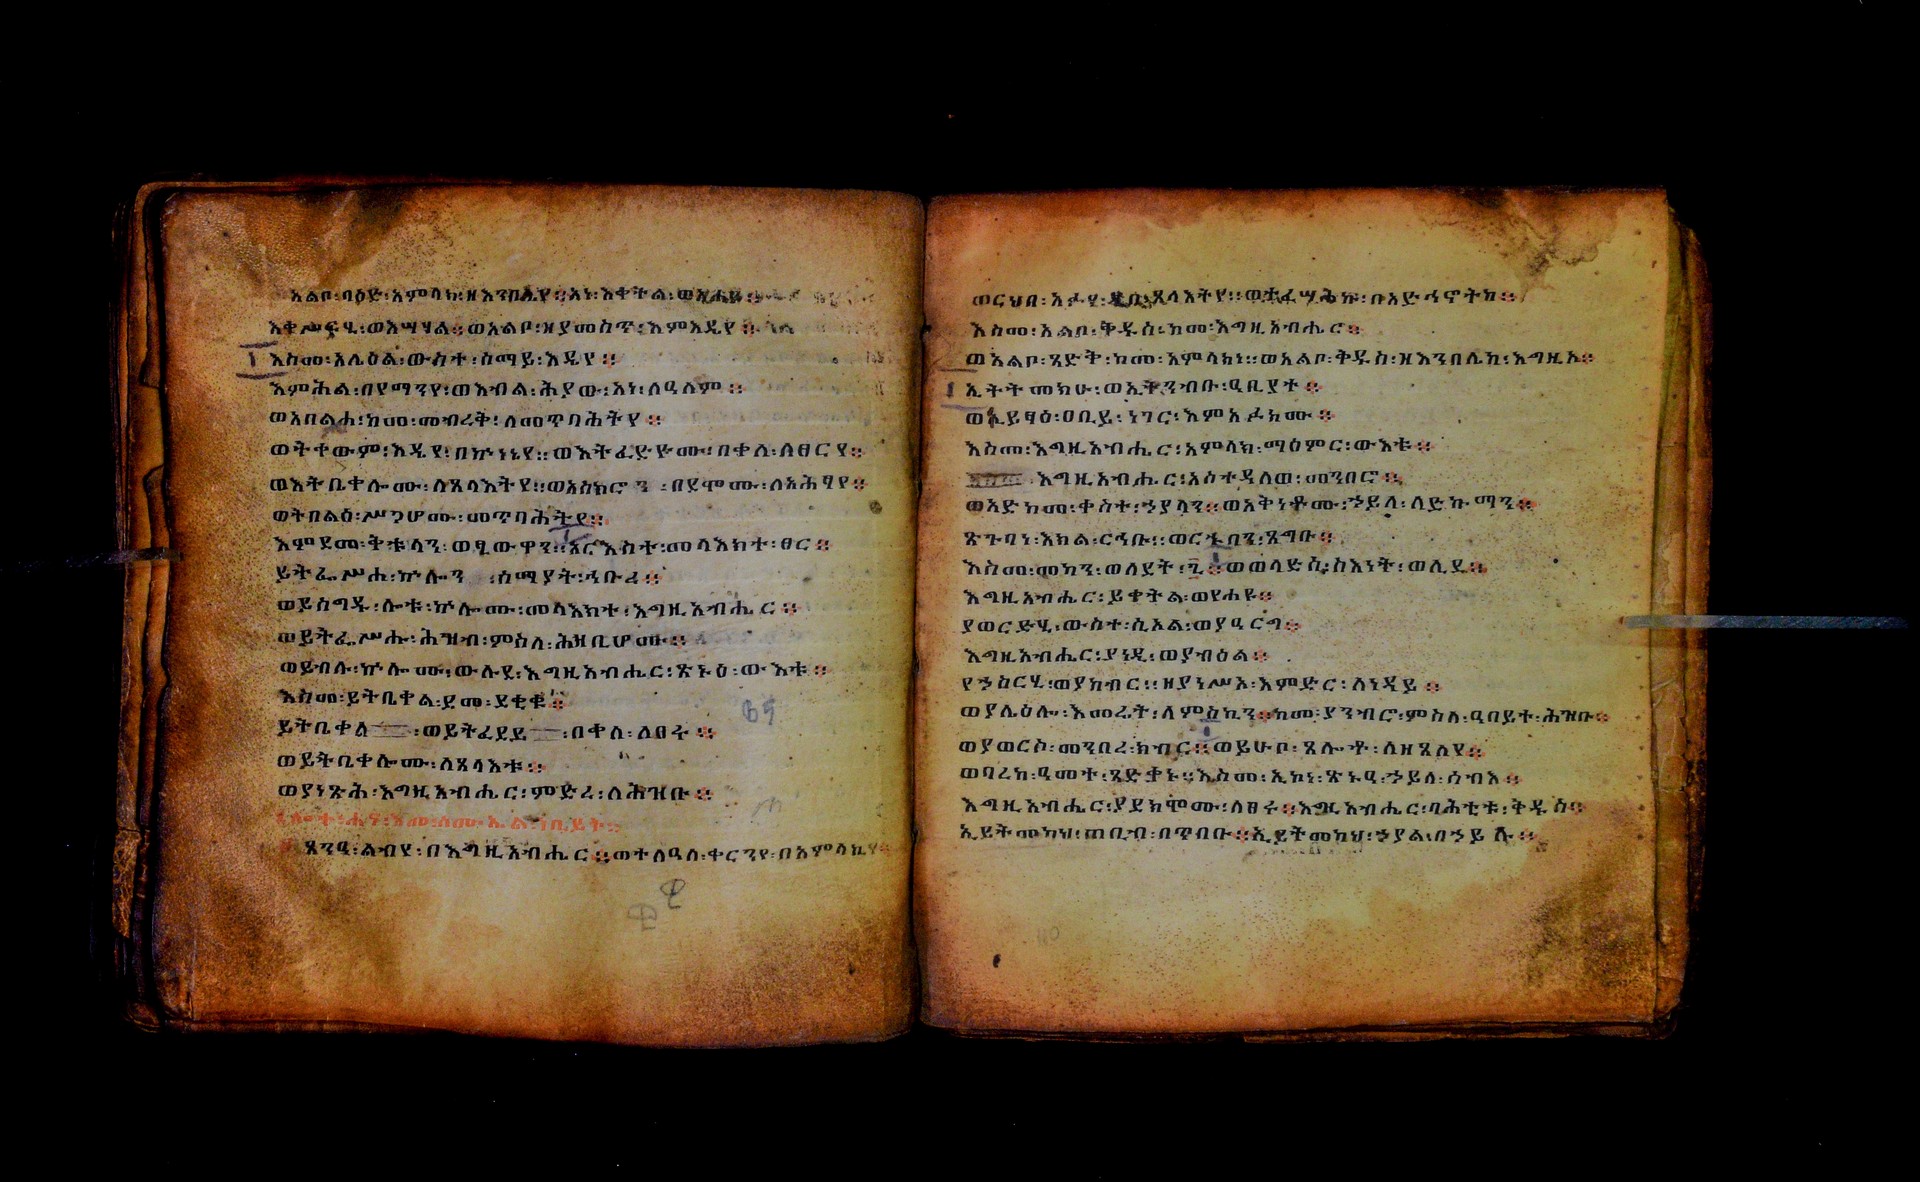 አልቦ፡ባዕድ፡አምላክ፡ዘእንበሌየ። አነ፡እቀትል፡ወአሐዩ።
እቀሥፍሂ፡ወእሣሃል። ወአልቦ፡ዘያመስጥ፡እምእዴየ።
እስመ፡አሌዕል፡ውስተ፡ሰማይ፡እዴየ።
እምሕል፡በየማንየ፡ወእብል፡ሕያው፡አነ፡ለዓለም።
ወአበልሖ፡ከመ፡መብረቅ፡ለመጥባሕትየ።
ወትቀውም፡እዴየ፡በኵነኔየ። ወእትፈድዮሙ፡በቀለ፡ለፀርየ።
ወእትቤቀሎሙ፡ለጸላእትየ። ወአሰክሮ፡በደሞሙ፡ለአሕፃየ።
ወትበልዕ፡ሥጋሆሙ፡መጥባሕትየ።
እምደመ፡ቅቱላን፡ወፂውዋን። አርእስተ፡መላእክተ፡ፀር።
ይትፌሥሐ፡ኵሎን፡ሰማያት፡ኅቡረ።
ወይስግዱ፡ሎቱ፡ኵሎሙ፡መላእክተ፡እግዚአብሔር።
ወይትፌሥሑ፡ሕዝብ፡ምስለ፡ሕዝቢሆሙ።
ወይብሉ፡ኵሎሙ፡ውሉደ፡እግዚአብሔር፡ጽኑዕ፡ውእቱ።
እስመ፡ይትቤቀል፡ደመ፡ደቂቁ።
ይትቤቀል፡ወይትፈደይ፡በቀለ፡ለፀሩ።
ወይትቤቀሎሙ፡ለጸላእቱ።
ወያነጽሕ፡እግዚአብሔር፡ምድረ፡ለሕዝቡ።
ጸሎተ፡ሐና፡እሙ፡ለሙኤል፡ነቢይት።
ጸንዓ፡ልብየ፡በእግዚአብሔር። ወተለዓለ፡ቀርንየ፡በአምላኪየ።
ወርህበ፡አፉየ፡ዲበ፡ጸላእትየ። ወተፈሣሕኩ፡በአድኅኖትከ።
እስመ፡አልቦ፡ቅዱስ፡ከመ፡እግዚአብሔር።
ወአልቦ፡ጻድቅ፡ከመ፡አምላክነ። ወአልቦ፡ቅዱስ፡ዘእንበሌከ፡እግዚኦ።
ኢትትመክሁ፡ወኢትንብቡ፡ዓቢያተ።
ወኢይፃዕ፡ዐቢይ፡ነገር፡እምአፉክሙ።
እስመ፡እግዚአብሔር፡አምላክ፡ማዕምር፡ውእቱ።
እግዚአብሔር፡አስተዳለወ፡መንበሮ።
ወአድከመ፡ቀስተ፡ኃያላን። ወአቅነቶሙ፡ኃይለ፡ለድኩማን።
ጽጉባነ፡እክል፡ርኅቡ። ወርኁባን፡ጸግቡ።
እስመ፡መካን፡ወለደት፡፯። ወወላድ፡ስእነት፡ወሊደ።
እግዚአብሔር፡ይቀትል፡ወየሐዩ።
ያወርድሂ፡ውስተ፡ሲኦል፡ወያዓርግ።
እግዚአብሔር፡ያነዲ፡ወያብዕል።
የኃስርሂ፡ወያከብር። ዘያነሥእ፡እምድር፡ለነዳይ።
ወያሌዕሎ፡እመሬት፡ለምስኪን። ከመ፡ያንብሮ፡ምስለ፡ዓበይተ፡ሕዝቡ።
ወያወርሶ፡መንበረ፡ክብር። ወይሁቦ፡ጸሎቶ፡ለዘጸለየ።
ወባረከ፡ዓመተ፡ጻድቃኑ። እስመ፡ኢኮነ፡ጽኑዓ፡ኃይለ፡ሰብእ።
እግዚአብሔር፡ያደክሞሙ፡ለፀሩ። እግዚአብሔር፡ባሕቲቱ፡ቅዱስ።
ኢይትመካህ፡ጠቢብ፡በጥበቡ። ኢይትመካህ፡ኃያል፡በኃይሉ።